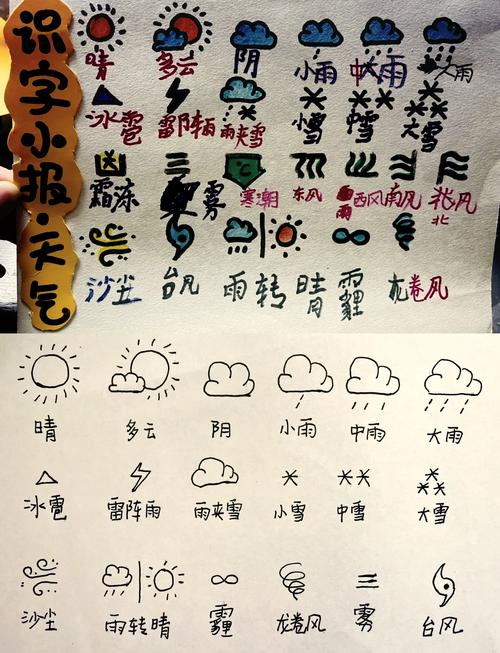 识字小报·天气
晴 多云 阴 小雨 中雨 大雨
冰雹 雷阵雨 雨夹雪 小雪 中雪 大雪
°C
霜冻 雾 寒潮 东风 西风 南风 北风
北
沙尘 台风 雨转晴 霾 龙卷风
晴 多云 阴 小雨 中雨 大雨
冰雹 雷阵雨 雨夹雪 小雪 中雪 大雪
沙尘 雨转晴 霾 龙卷风 雾 台风